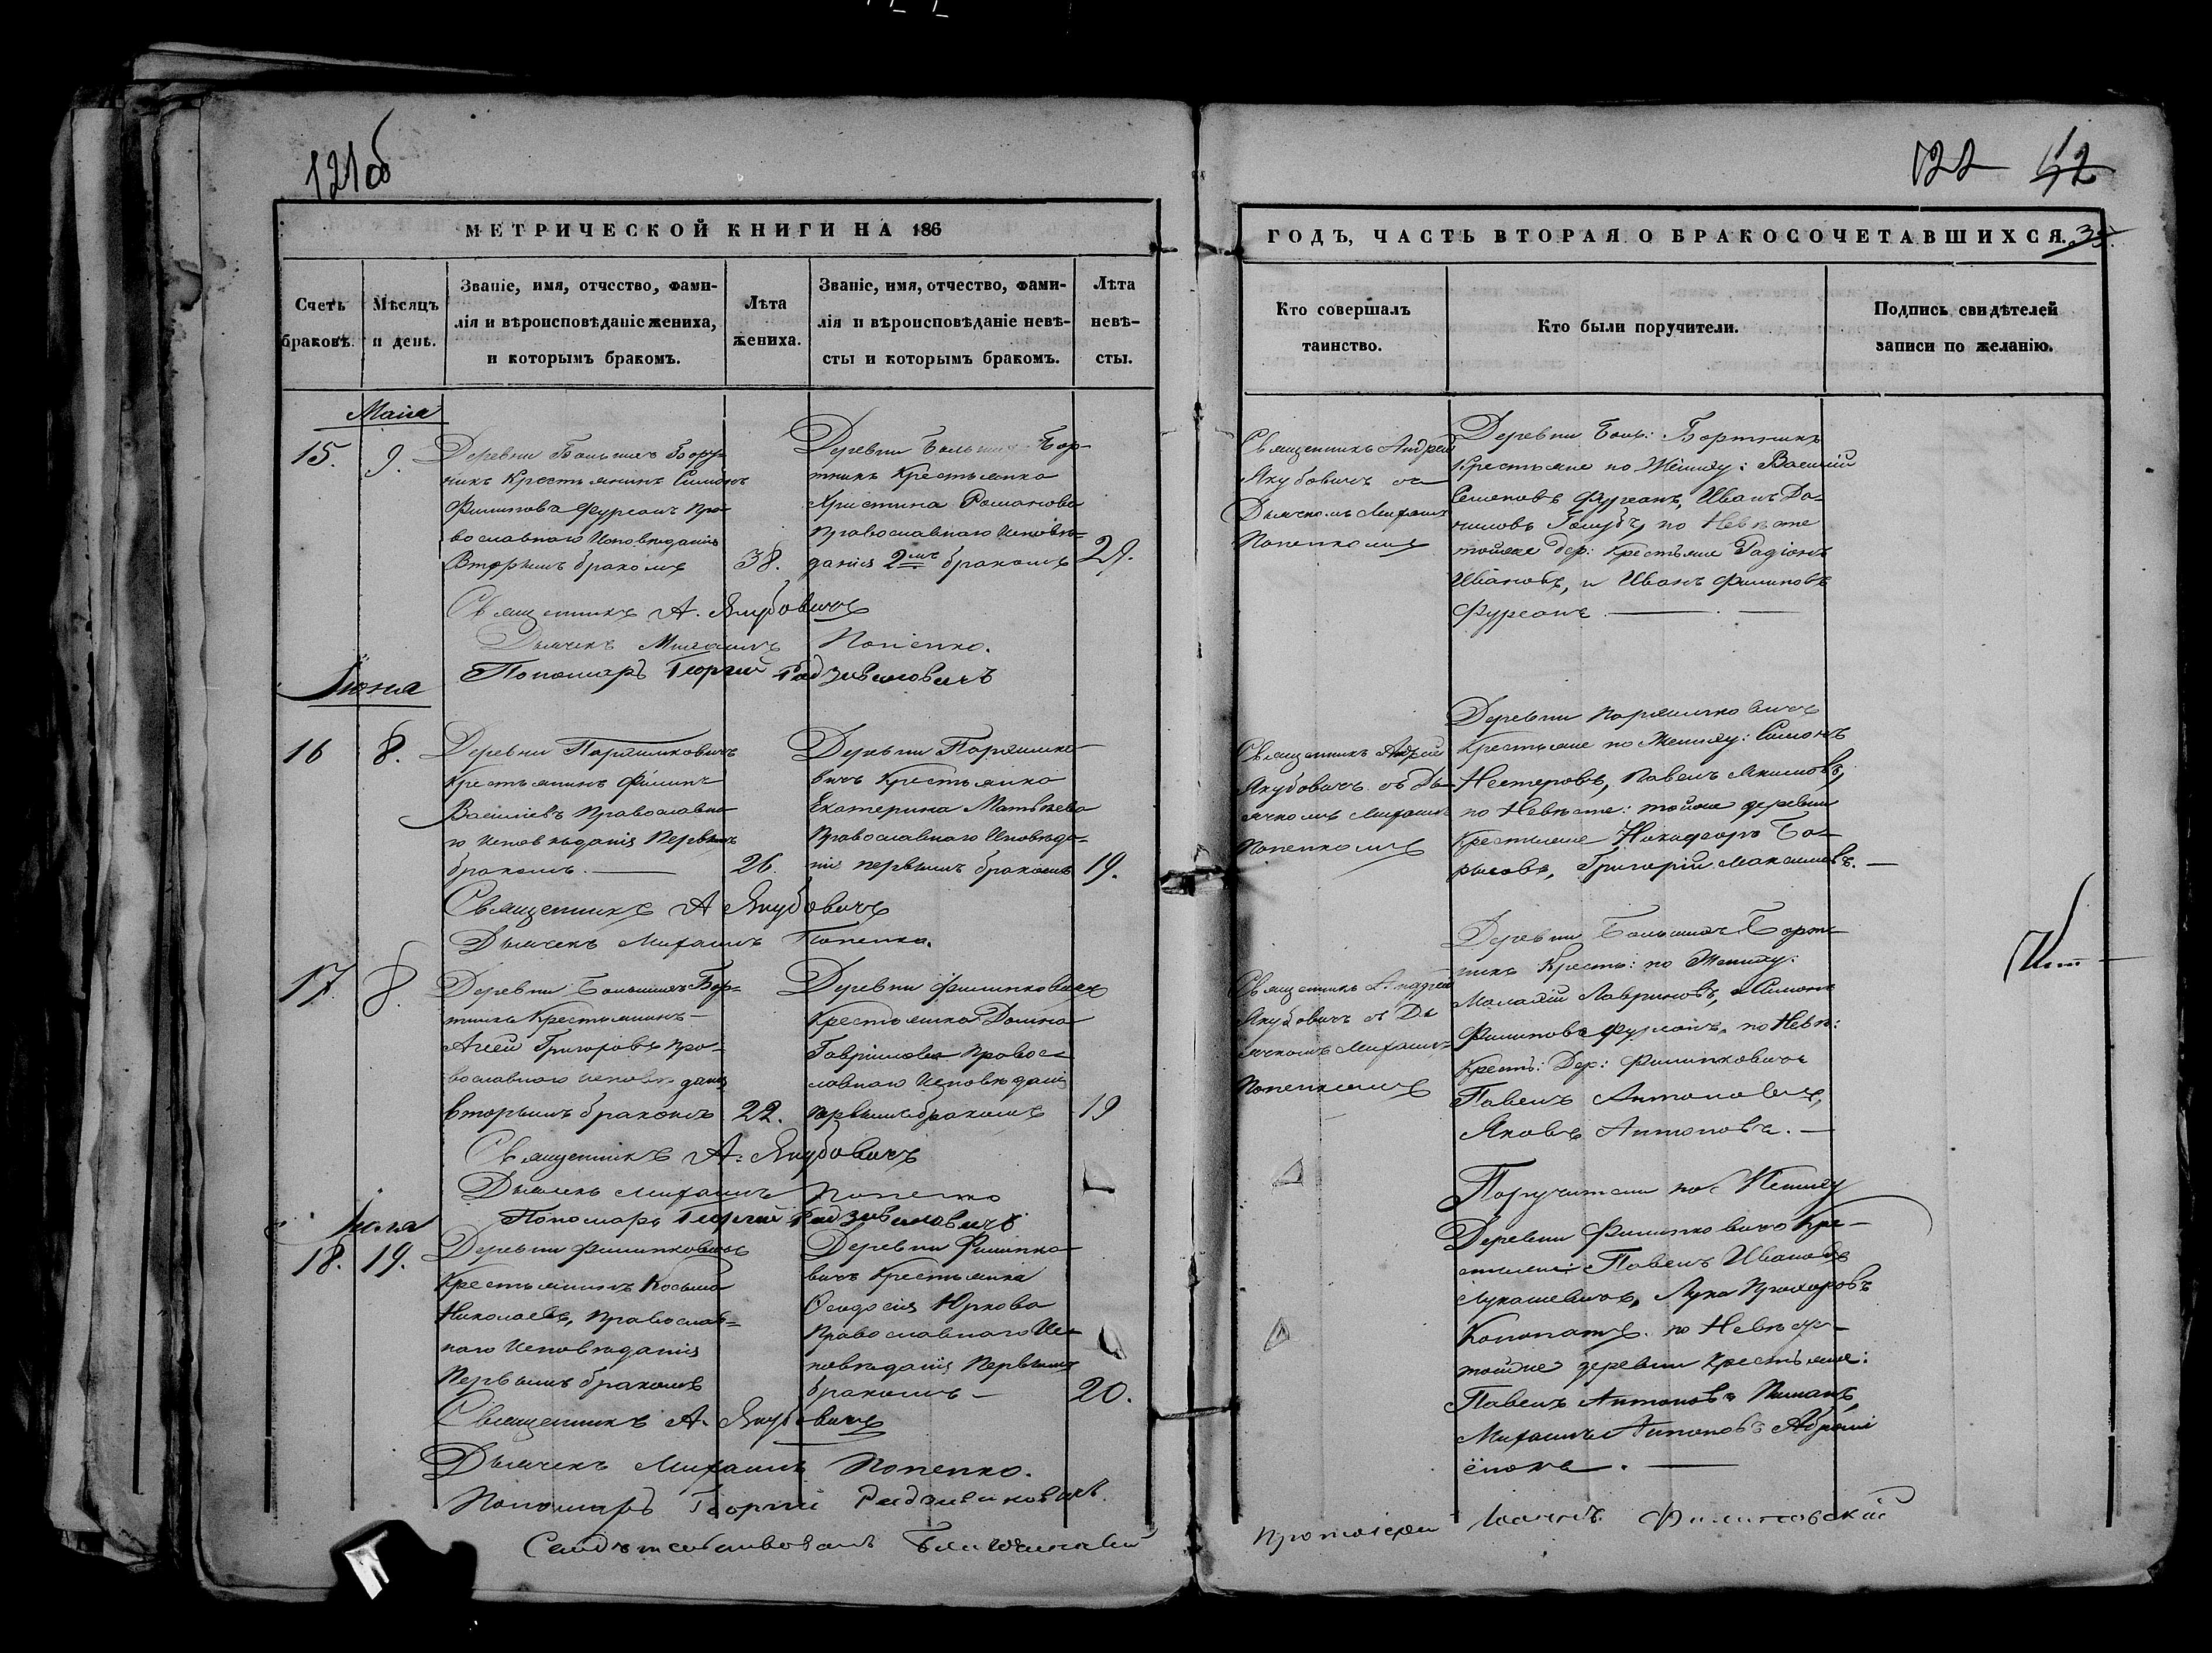 121об
МЕТРИЧЕСКОЙ КНИГИ НА 186
Счетъ
браковъ.
Мѣсяцъ
и день.
Званіе, имя, отчество, фами-
лія и вѣроисповѣданіе жениха,
и которымъ бракомъ.
Лѣта
жениха.
Званіе, имя, отчество, фами-
лія и вѣроисповѣданіе невѣ-
сты и которымъ бракомъ.
Лѣта
невѣ-
сты.
Маія
15.
9.
Деревни Большихъ Борт-
никъ Крестьянинъ Симонъ
Филиповъ Фурсанъ Пра-
вославнаго Исповѣданія
Вторымъ бракомъ
38.
Деревни Большихъ Бор-
тникъ Крестьянка
Христина Романова
Православнаго Исповѣ-
данія 2мъ бракомъ
29.
Священникъ А. Якубовичъ
Дьячекъ Михаилъ Попенко.
Пономаръ Георгій Радзивиловичъ
Іюня
16
8.
Деревни
Крестьянинъ Филипъ
Василіевъ Православна-
го исповѣданія Первымъ
бракомъ.
26.
Деревни
вичъ Крестьянка
Екатерина Матвѣева
Православнаго Исповѣда-
нія первымъ бракомъ
19.
Священникъ А Якубовичъ
Дьячекъ Михаилъ Попенко.
17.
8.
Деревни Большихъ Бор-
тникъ Крестьянинъ
Григоровъ Пра-
вославнаго исповѣданія
вторымъ бракомъ
22.
Деревни Филипковичъ
Крестьянка Домна
Гавриилова Правос-
лавнаго Исповѣданія
первымъ бракомъ
19
Священникъ А. Якубовичъ
Дьячекъ Михаилъ Попенко
Пономаръ Георгій Радзивиловичъ
Іюля
18.
19.
Деревни Филипковичъ
Крестьянинъ Косьма
Николаевъ, Православ-
наго Исповѣданія
Первымъ бракомъ
Деревни Филипко-
вичъ Крестьянка
Ѳеодосія Юркова
Православнаго Ис-
повѣданія Первымъ
бракомъ
20.
Священникъ А. Якубовичъ
Дьячекъ Михаилъ Попенко.
Пономаръ Георгій Радзивиловичъ.
122
ГОДЪ, ЧАСТЬ ВТОРАЯ О БРАКОСОЧЕТАВШИХСЯ.
Кто совершалъ
таинство.
Кто были поручители.
Подпись свидѣтелей
записи по желанію.
Священникъ Андрей
Якубовичъ съ
Дьячкомъ Михаил
Попенкомъ
Деревни Боль: Бортникъ
Крестьяне по Жениху: Василій
Семеновъ Фурсанъ, Иванъ Да-
ниловъ Голубъ, по Невѣсте
тойже дер: Крестьяне Радіонъ
Ивановъ, и Иванъ Филиповъ
Фурсанъ
Священникъ Андрей
Якубовичъ съ Дь-
ячкомъ Михаил
Попенкомъ
Деревни
Крестьяне по Жениху: Симонъ
Нестеровъ, Павелъ Якимовъ,
по Невѣсте: тойже деревни
Крестьяне Бо-
рисовъ, Григорій Максимовъ.
Священникъ Андрей
Якубовичъ съ Дь
ячкомъ Михаил-
Попенкомъ
Деревни Большихъ Борт-
никъ Кресть: по Жениху:
Лавриновъ, и Симонъ
Филиповъ Фурсанъ, по Невѣ:
Кресть: Дер: Филипковичъ
Павелъ Антоновъ,
Яковъ Антоновъ.
Поручители по Жениху
Деревни Филипковичъ Кре-
стьяне: Павелъ Ивановъ
Лукашевичъ, Лука Прохоровъ
по Невѣсте
тойже деревни Крестьяне:
Павелъ Антоновъ
Михаилъ Антоновъ
Протоіерей Іоаннъ